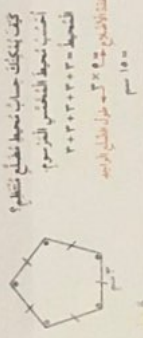 كيف يمكنك حساب محيط مضلع منتظم؟
احسب محيط المخمس المرسوم.
المحيط = ٣ + ٣ + ٣ + ٣ + ٣
= ٥ × ٣ طول الضلع الواحد
= ١٥ سم
٣ سم